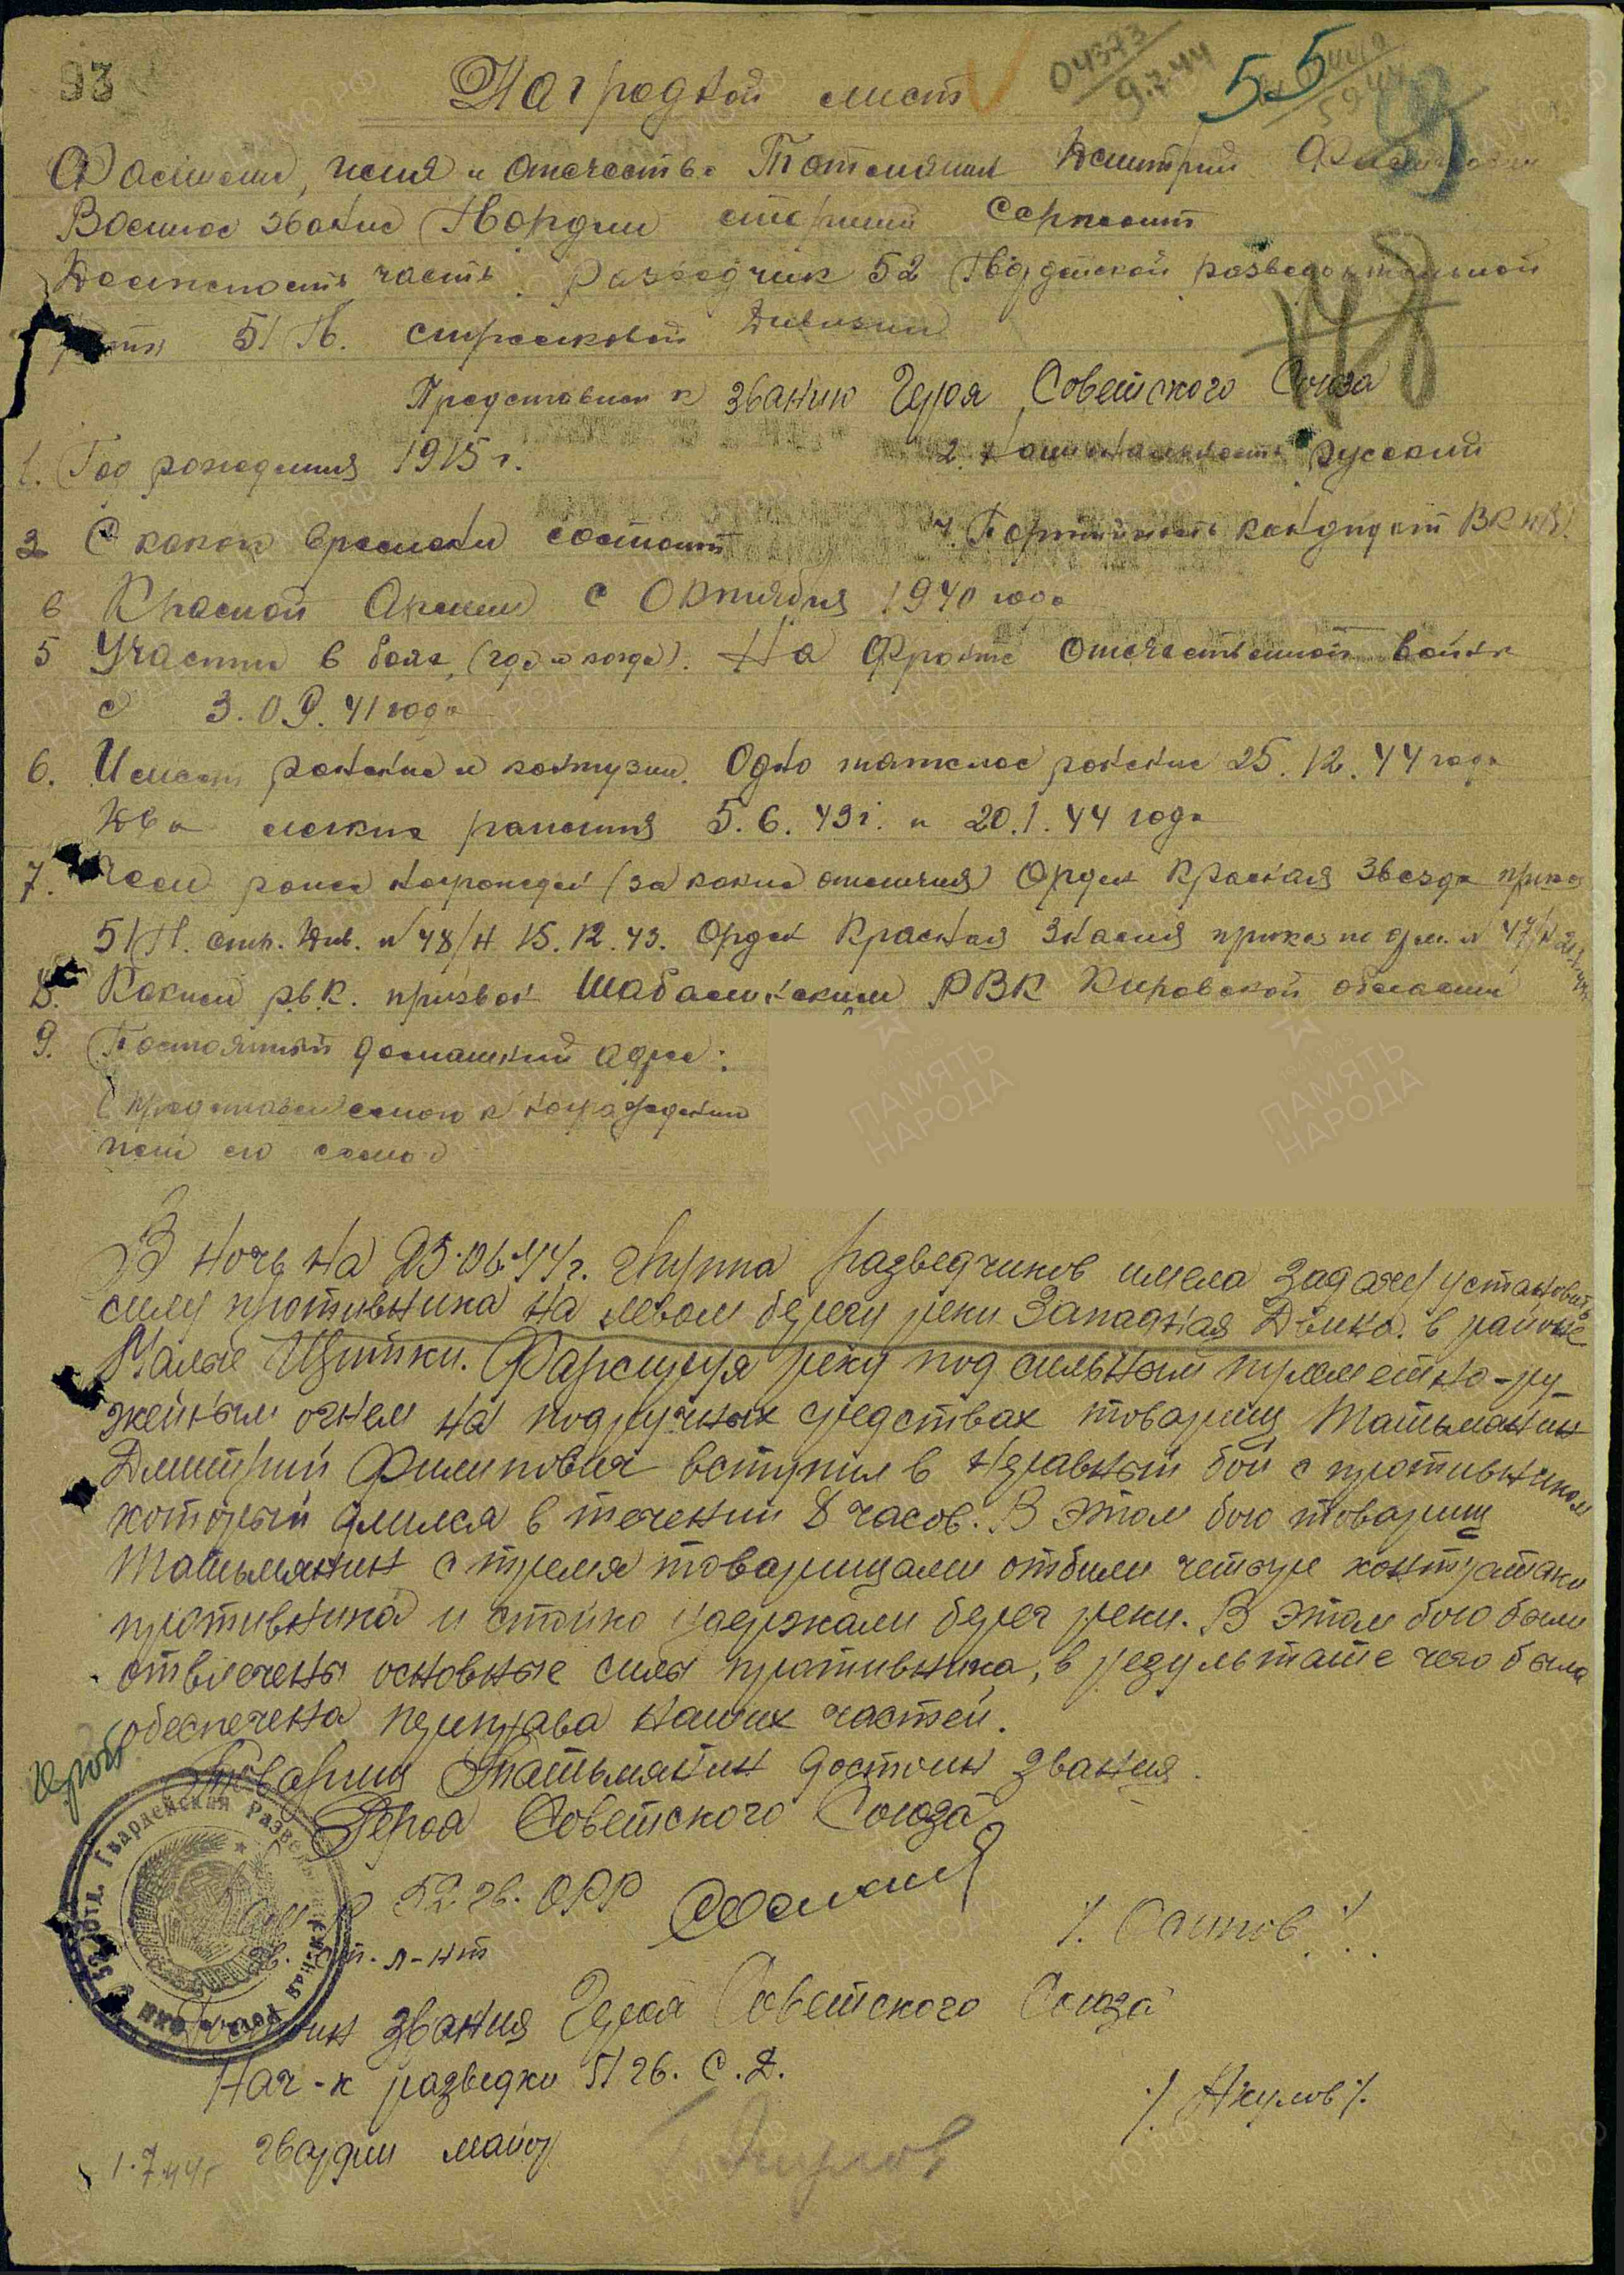 93
04373
9.7.44
55
Наградной лист
Фамилия, имя и отчество Татмянин Дмитрий
Военное звание Гвардии старший Сержант
Должность часть. Разведчик 52 Гвардейской разведывательной
роты 51 Гв. стрелковой дивизии
Представлен к званию Героя Советского Союза
1. Год рождения 1915 г.
2. Национальность русский
3 С какого времени состоит
4. Партийность кандидат ВКП(б).
в Красной Армии с Октября 1940 года
5 Участие в боях (где и когда). На фронте Отечественной войны
с 3.09.41 года
6. Имеет ранение и контузии. Одно тяжелое ранение 25.12.44 года
Два легких ранения 5.6.43 г. и 20.1.44 года
7. Чем ранее награжден (за какие отличия) Орден Красная Звезда приказ
51 Гв. стр. див. № 48/н 15.12.43. Орден Красная Знамя приказ № 47/н
8. Каким р.в.к. призван Шабалинским РВК Кировской области
9. Постоянный домашний адрес:
представляемого к награждению
его семьи
В ночь на 25.06.44 г. группа разведчиков имела задачу установить
силу противника на левом берегу реки Западная Двина. в районе
Малые Щитки. Фарсируя реку под сильным пулеметно-ру-
жейным огнем на подручных средствах товарищ Татьманин
Дмитрий Филипович вступил в неравный бой с противником
который длился в течении 8 часов. В этом бою товарищ
Татьмянин с тремя товарищами отбили четыре контратаки
противника и стойко удержали берег реки. В этом бою были
отвлечены основные силы противника, в результате чего была
обеспечена переправа наших частей.
Товарищ Татьмянин достоин звания
Героя Советского Союза
Ком-р 52 гв. ОРР
гв. ст. л-нт
Достоин звания Героя Советского Союза
Нач-к разведки 51 гв. С.Д.
гвардии майор
1.7.44 г
ПАМЯТЬ
НАРОДА
ПАМЯТЬ
НАРОДА